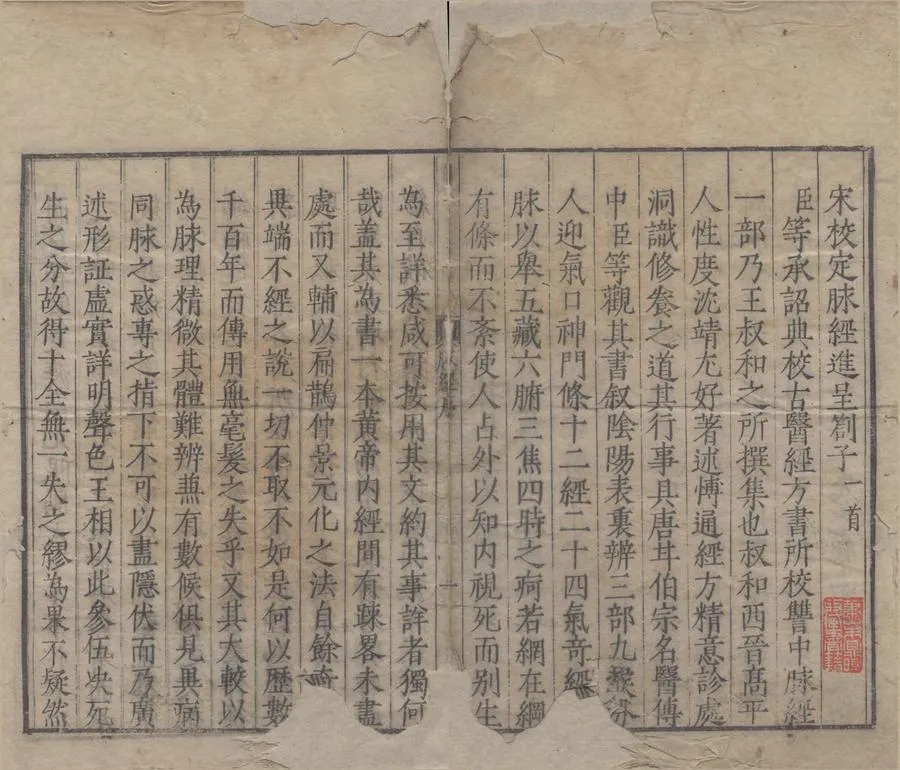 宋校定脉經進呈劄子一首
臣等承詔典校古醫經方書所校讐中脉經
一部乃王叔和之所撰集也叔和西晉髙平
人性度沈靖尢好著述博通經方精意診處
洞識修養之道其行事具唐甘伯宗名醫傳
中臣等觀其書叙陰陽表裏辨三部九𠋫分
人迎氣口神門條十二經二十四氣竒經
脉以舉五藏六腑三焦四時之疴若網在綱
有條而不紊使人占外以知内視死而别生
為至詳悉咸可按用其文約其事詳者獨何
哉盖其為書一本黄帝内經間有踈畧未盡
處而又輔以扁鵲仲景元化之法自餘
異端不經之說一切不取不如是何以歴數
千百年而傳用無毫髮之失乎又其大較以
為脉理精微其體難辨兼有數候俱見異病
同脉之惑專之指下不可以盡隱伏而乃廣
述形証虛實詳明聲色王相以此參伍决死
生之分故得十全無一失之繆為果不疑然
脉經序
一